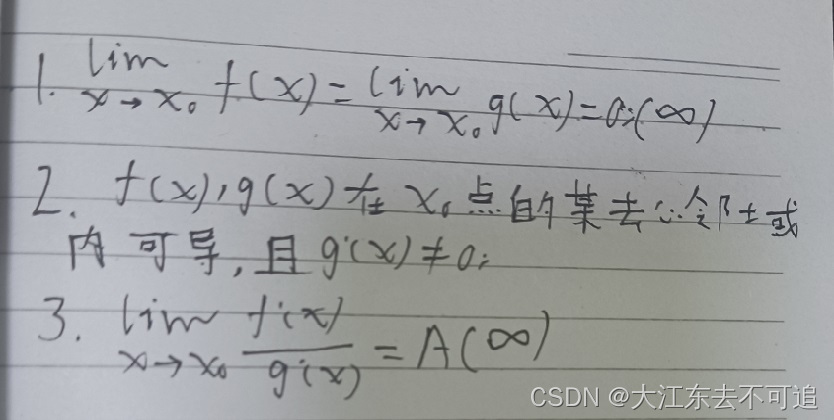 1. lim x→x₀ f(x) = lim x→x₀ g(x) = 0;(∞)
2. f(x), g(x) 在 x₀ 点的某去心邻域
内可导, 且 g'(x) ≠ 0;
3. lim x→x₀ f'(x)/g'(x) = A(∞)
CSDN @大江东去不可追